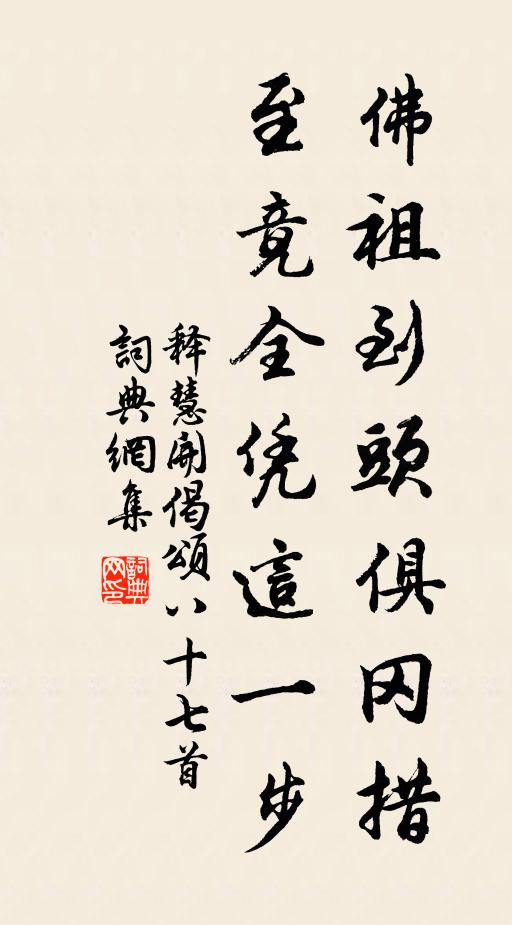 佛祖到頭俱罔措
至竟全凭這一步
释慧開偈頌八十七首
詞典網集
詞典网印